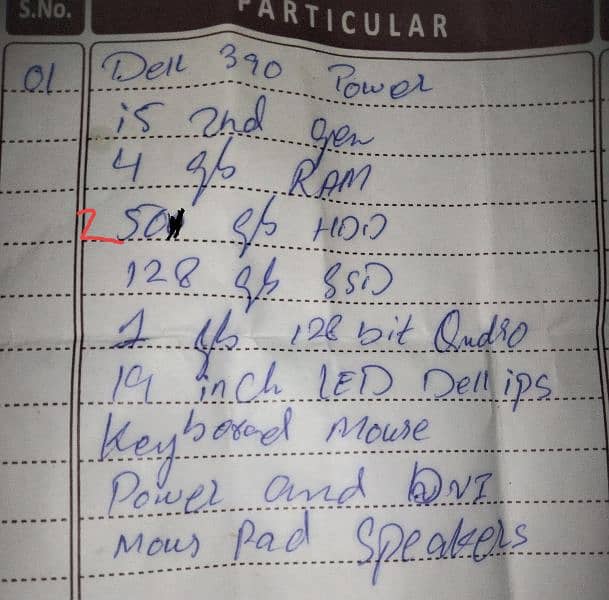 S.No. PARTICULAR
01 Dell 390 Power
i5 2nd gen
4 gb RAM
250 gb HDD
128 gb SSD
1 gb 128 bit Qudro
19 inch LED Dell ips
Keyborad Mouse
Power and DVI
Mous Pad Speakers